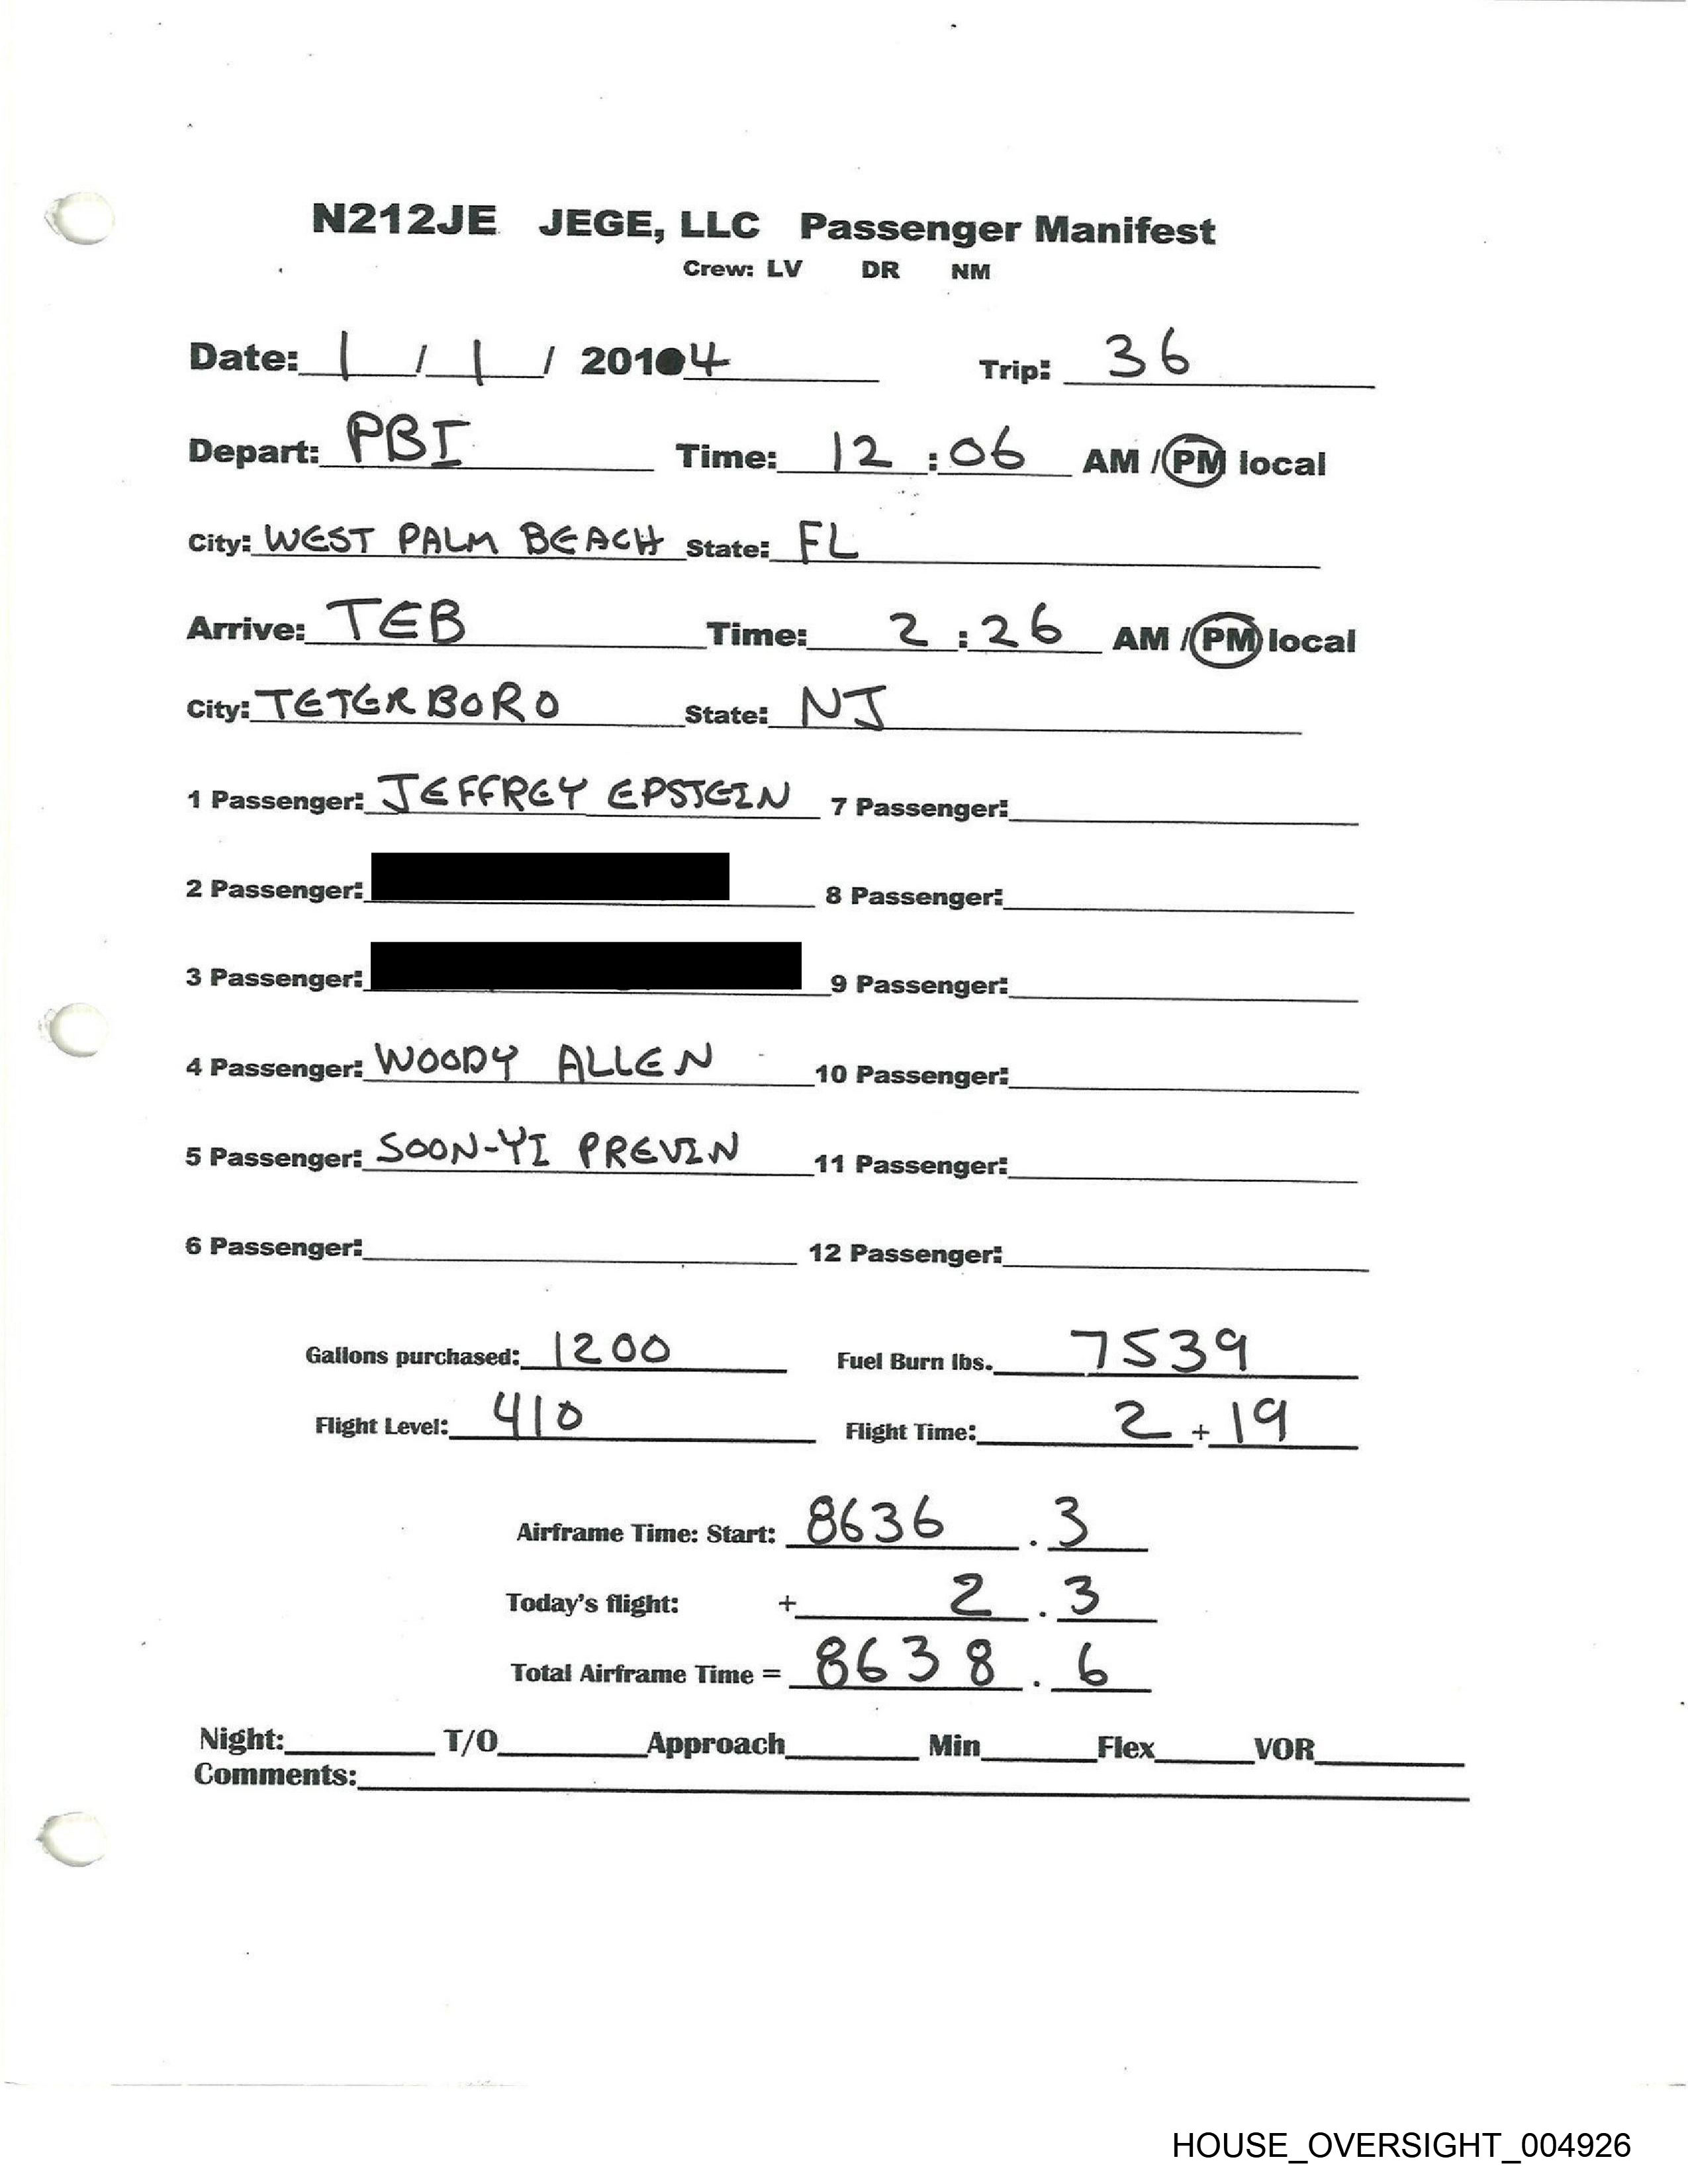 N212JE JEGE, LLC Passenger Manifest
Crew: LV DR NM
Date: 1 / 1 / 2014 Trip: 36
Depart: PBI Time: 12 : 06 AM / PM local
City: WEST PALM BEACH State: FL
Arrive: TEB Time: 2 : 26 AM / PM local
City: TETERBORO State: NJ
1 Passenger: JEFFREY EPSTEIN 7 Passenger:
2 Passenger: 8 Passenger:
3 Passenger: 9 Passenger:
4 Passenger: WOODY ALLEN 10 Passenger:
5 Passenger: SOON-YI PREVIN 11 Passenger:
6 Passenger: 12 Passenger:
Gallons purchased: 1200 Fuel Burn lbs. 7539
Flight Level: 410 Flight Time: 2 + 19
Airframe Time: Start: 8636 . 3
Today's flight: + 2 . 3
Total Airframe Time = 8638 . 6
Night: T/O Approach Min Flex VOR
Comments:
HOUSE_OVERSIGHT_004926